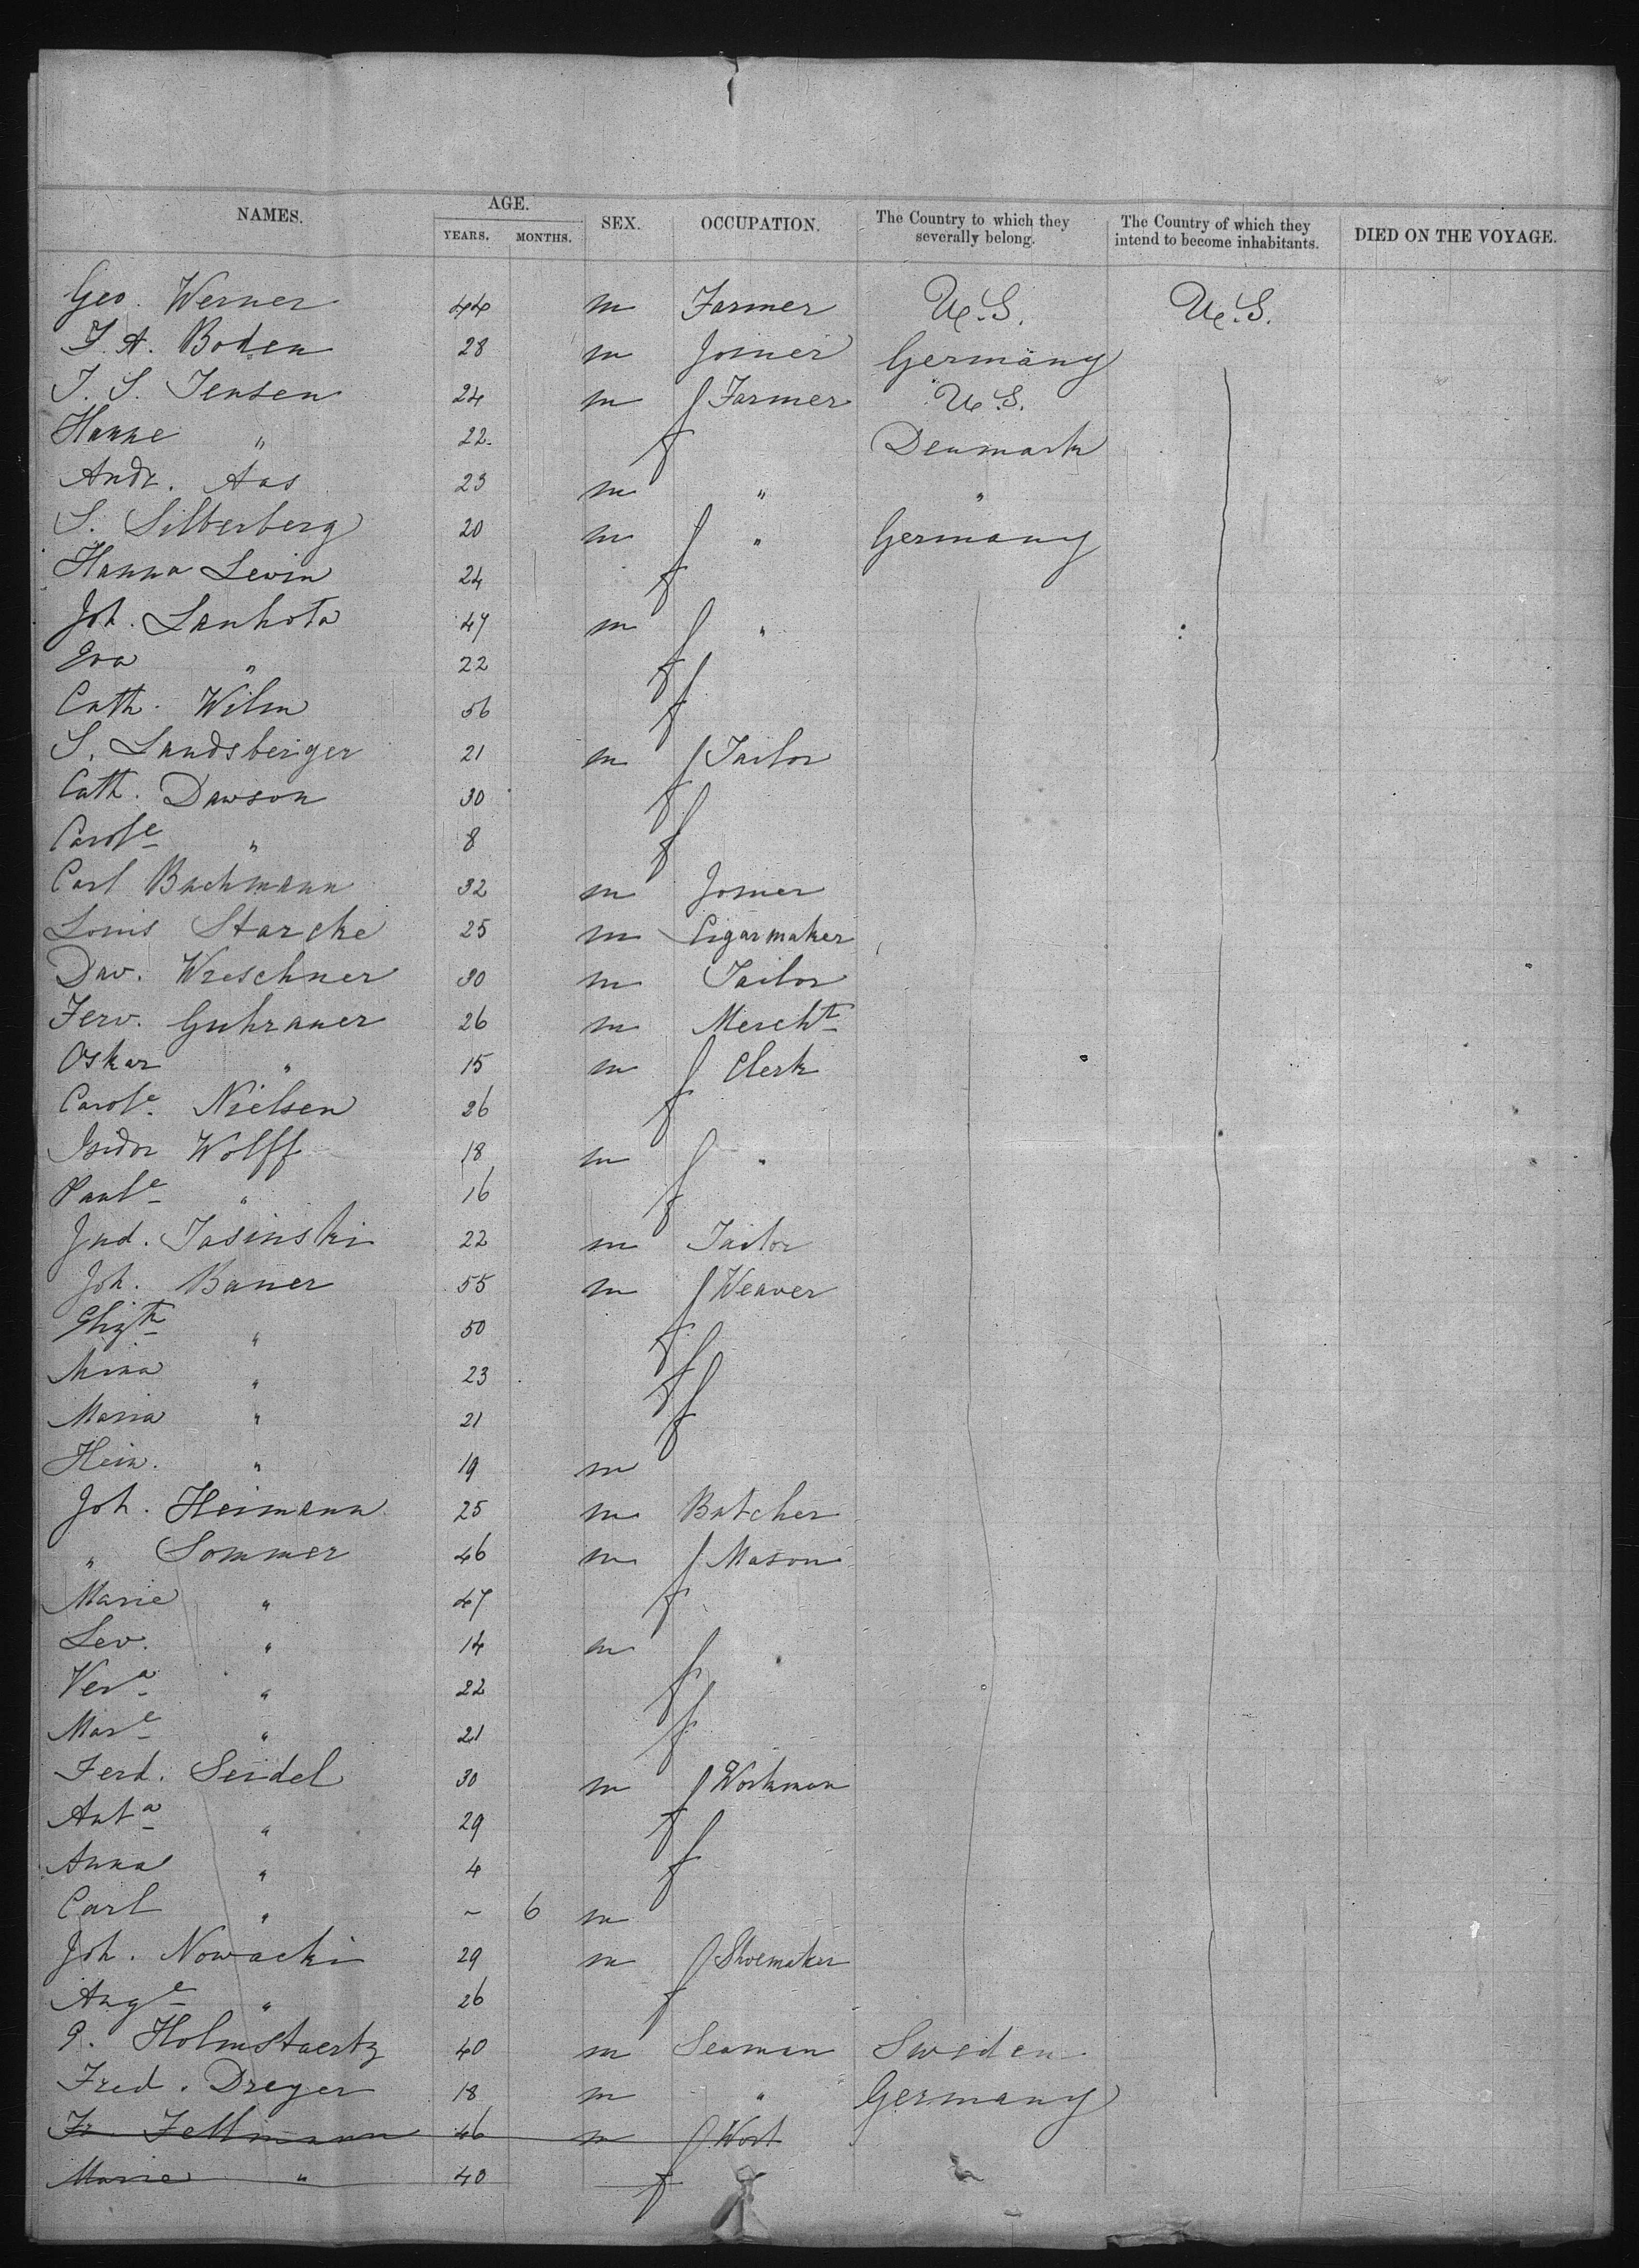 NAMES. AGE. SEX. OCCUPATION. The Country to which they severally belong. The Country of which they intend to become inhabitants. DIED ON THE VOYAGE.
YEARS. MONTHS.
Geo. Werner 44 m Farmer U.S. U.S.
J. A. Boden 28 m Joiner Germany
J. S. Jensen 24 m Farmer U.S.
Hanne " 22 f Denmark
Andr. Aas 23 m " "
S. Silberberg 20 m " Germany
Hanna Levin 24 f
Joh. Lanhota 47 m "
Eva " 22 f
Cath. Wilm 56 f
S. Landsberger 21 m Tailor
Cath. Dawson 30 f
Carole " 8 f
Carl Bachmann 32 m Joiner
Louis Starcke 25 m Cigarmaker
Dav. Wreschner 30 m Tailor
Ferd. Guhrauer 26 m Mercht
Oskar " 15 m Clerk
Carole Nielsen 26 f
Isidor Wolff 18 m "
Paule " 16 f
Jud. Jasinski 22 m Tailor
Joh. Bauer 55 m Weaver
Elizth " 50 f
Mina " 23 f
Maria " 21 f
Hein. " 19 m
Joh. Heimann 25 m Butcher
" Sommer 46 m Mason
Marie " 47 f
Leo. " 14 m
Vera " 22 f
Mare " 21 f
Ferd. Seidel 30 m Workman
Anta " 29 f
Anna " 4 f
Carl " - 6 m
Joh. Nowacki 29 m Shoemaker
Auge " 26 f
P. Holmstaertz 40 m Seaman Sweden
Fred. Dreyer 18 m " Germany
Fr. Fellmann 46 m Work
Marie " 40 f